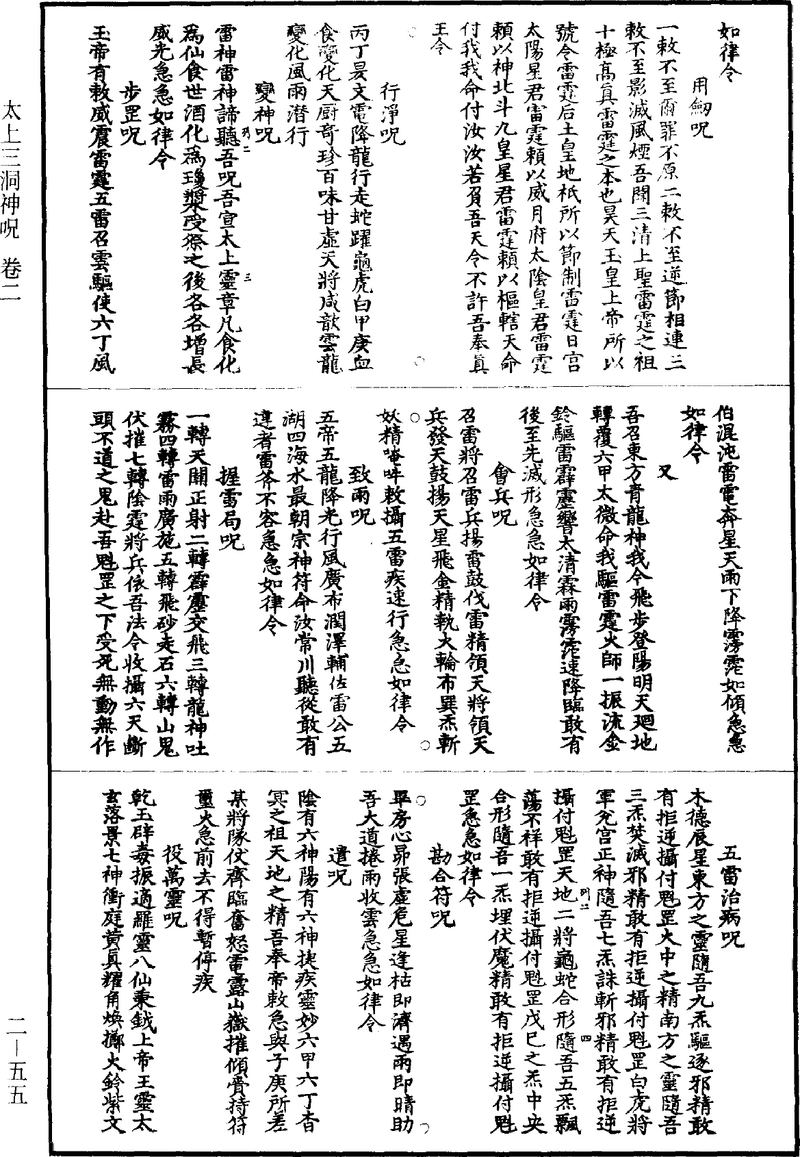 太上三洞神呪　卷二
二—五五
如律令
用劒呪
一敕不至爾罪不原二敕不至逆節相連三
敕不至影滅風煙吾聞三清上聖雷霆之祖
十極高真雷霆之本也昊天玉皇上帝所以
號令雷霆后土皇地祇所以節制雷霆日宮
太陽星君雷霆賴以威月府太陰皇君雷霆
賴以神北斗九皇星君雷霆賴以樞轄天命
付我我命付汝汝若負吾天令不許吾奉真
王令
行淨呪
丙丁炅文電降龍行走蛇躍龜虎白甲庚血
食變化天厨奇珍百味甘虛天將咸歆雲龍
變化風雨潛行
變神呪
雷神雷神諦聽吾呪吾宣太上靈章凡食化
為仙食世酒化為瓊漿受祭之後各各增長
威光急急如律令
步罡呪
玉帝有敕威震雷霆五雷召雲驅使六丁風
伯混沌雷電奔星天雨下降霶霈如傾急急
如律令
又
吾召東方青龍神我令飛步登陽明天廻地
轉覆六甲太微命我驅雷霆火師一振流金
鈴驅雷霹靂響太清霖雨霶霈速降臨敢有
後至先滅形急急如律令
會兵呪
召雷將召雷兵揚雷鼓伐雷精領天將領天
兵發天鼓揚天星飛金精執火輪布巽炁斬
妖精唵吽敕攝五雷疾速行急急如律令
致雨呪
五帝五龍降光行風廣布潤澤輔佐雷公五
湖四海水最朝宗神符命汝常川聽從敢有
違者雷斧不容急急如律令
握雷局呪
一轉天關正射二轉霹靂交飛三轉龍神吐
霧四轉雷雨廣施五轉飛砂走石六轉山鬼
伏摧七轉陰霆將兵依吾法令收攝六天斷
頭不道之鬼赴吾魁罡之下受死無動無作
五雷治病呪
木德辰星東方之靈隨吾九炁驅逐邪精敢
有拒逆攝付魁罡火中之精南方之靈隨吾
三炁焚滅邪精敢有拒逆攝付魁罡白虎將
軍兊宮正神隨吾七炁誅斬邪精敢有拒逆
攝付魁罡天地二將龜蛇合形隨吾五炁飄
蕩不祥敢有拒逆攝付魁罡戊巳之炁中央
合形隨吾一炁埋伏魔精敢有拒逆攝付魁
罡急急如律令
勘合符呪
畢房心昴張虛危星逢枯即濟遇雨即晴助
吾大道捲雨收雲急急如律令
遣呪
陰有六神陽有六神捷疾靈妙六甲六丁杳
冥之祖天地之精吾奉帝敕急與子庚所差
某將隊仗齊臨奮怒雷霹山嶽摧傾賫持符
璽火急前去不得暫停疾
役萬靈呪
乾玉辟毒振適羅靈八仙秉鉞上帝王靈太
玄落景七神衝庭黃真耀角煥擲火鈴紫文